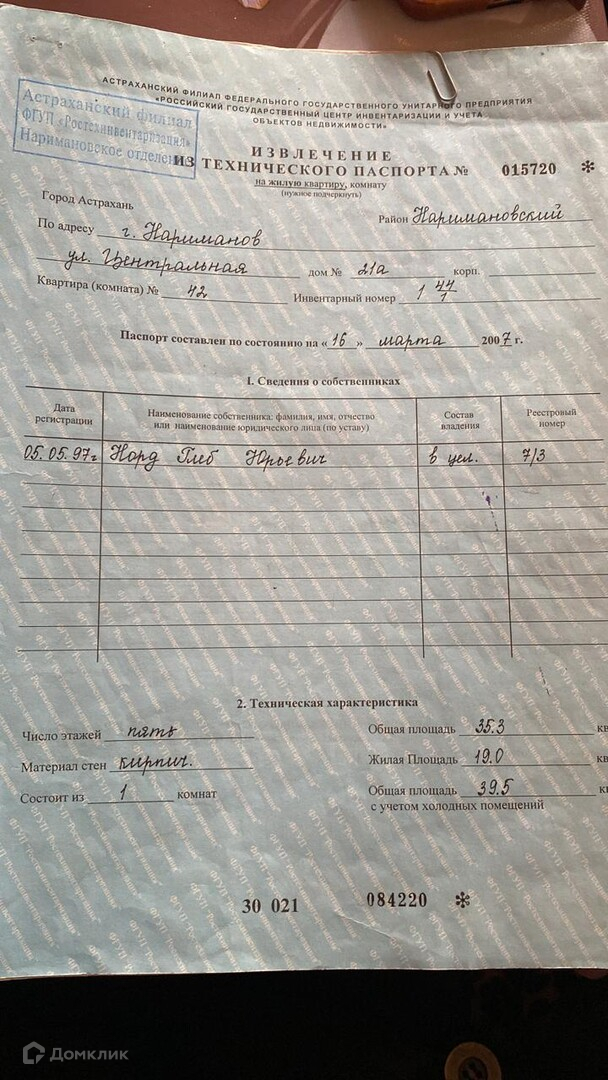 АСТРАХАНСКИЙ ФИЛИАЛ ФЕДЕРАЛЬНОГО ГОСУДАРСТВЕННОГО УНИТАРНОГО ПРЕДПРИЯТИЯ
«РОССИЙСКИЙ ГОСУДАРСТВЕННЫЙ ЦЕНТР ИНВЕНТАРИЗАЦИИ И УЧЕТА
ОБЪЕКТОВ НЕДВИЖИМОСТИ»
Астраханский филиал
ФГУП «Ростехинвентаризация»
Наримановское отделение
ИЗВЛЕЧЕНИЕ
ИЗ ТЕХНИЧЕСКОГО ПАСПОРТА № 015720 *
на жилую квартиру, комнату
(нужное подчеркнуть)
Город Астрахань
Район Наримановский
По адресу г. Нариманов
ул. Центральная дом № 21а корп.
Квартира (комната) № 42 Инвентарный номер 1 44/1
Паспорт составлен по состоянию на «16» марта 2007 г.
1. Сведения о собственниках
Дата регистрации
Наименование собственника: фамилия, имя, отчество или наименование юридического лица (по уставу)
Состав владения
Реестровый номер
05.05.97г Норд Глеб Юрьевич в цел. 7/3
2. Техническая характеристика
Число этажей пять Общая площадь 35.3 кв
Материал стен кирпич. Жилая Площадь 19.0 кв
Состоит из 1 комнат Общая площадь 39.5
с учетом холодных помещений
30 021 084220 *
Домклик